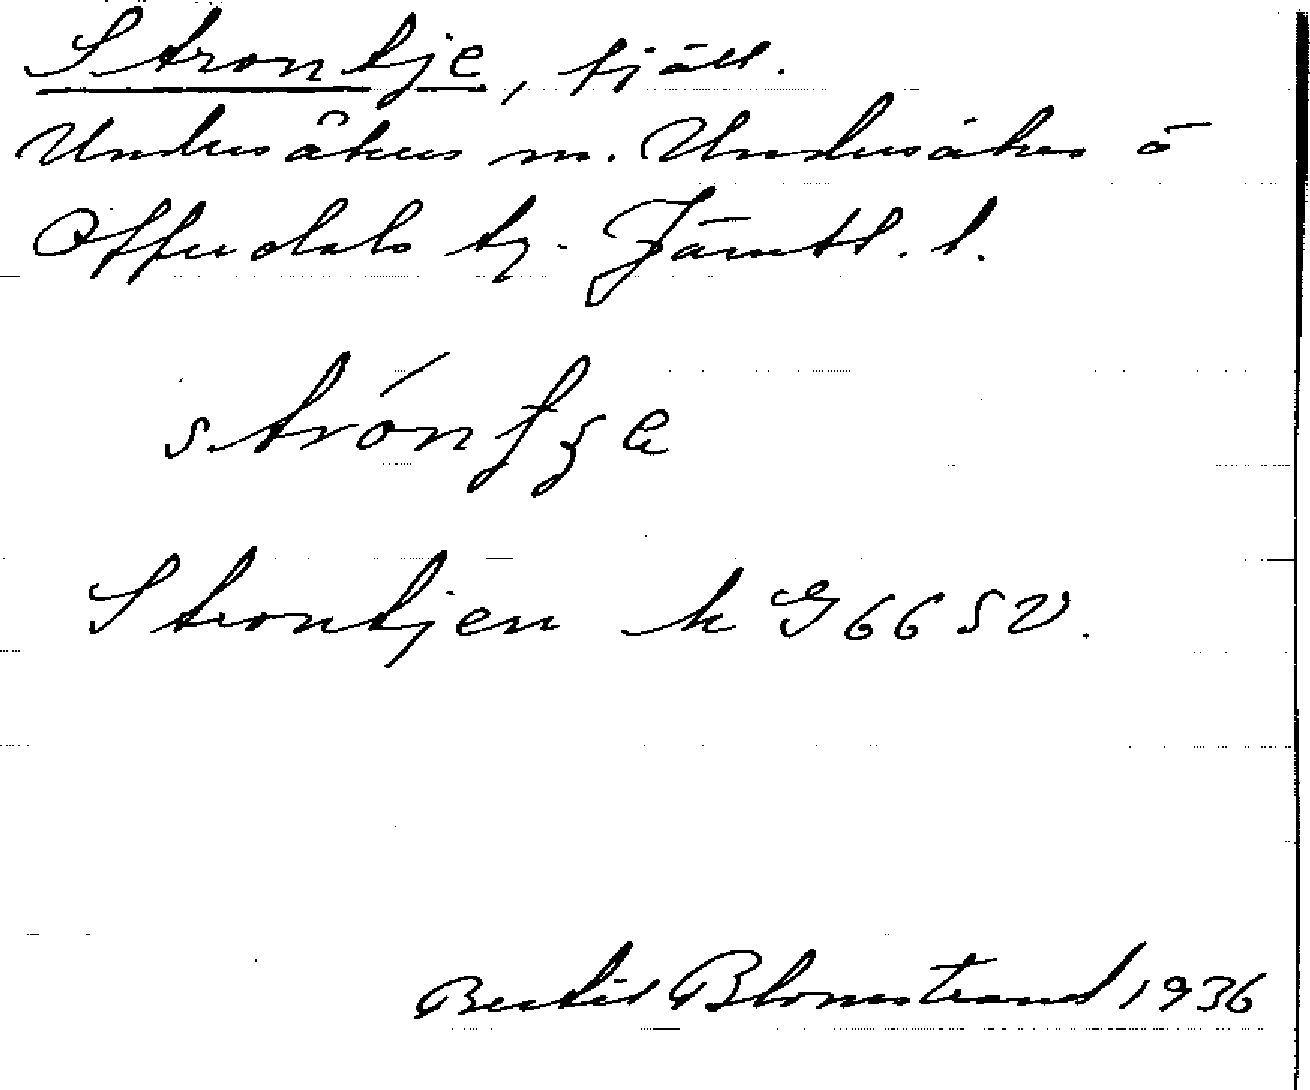 Strontje, fjäll.
Undersåkers m. Undersåkers o
Offerdals tg. Jämtl. l.
Strontjen k G 66 SV.
Bertil Blomstrand 1936